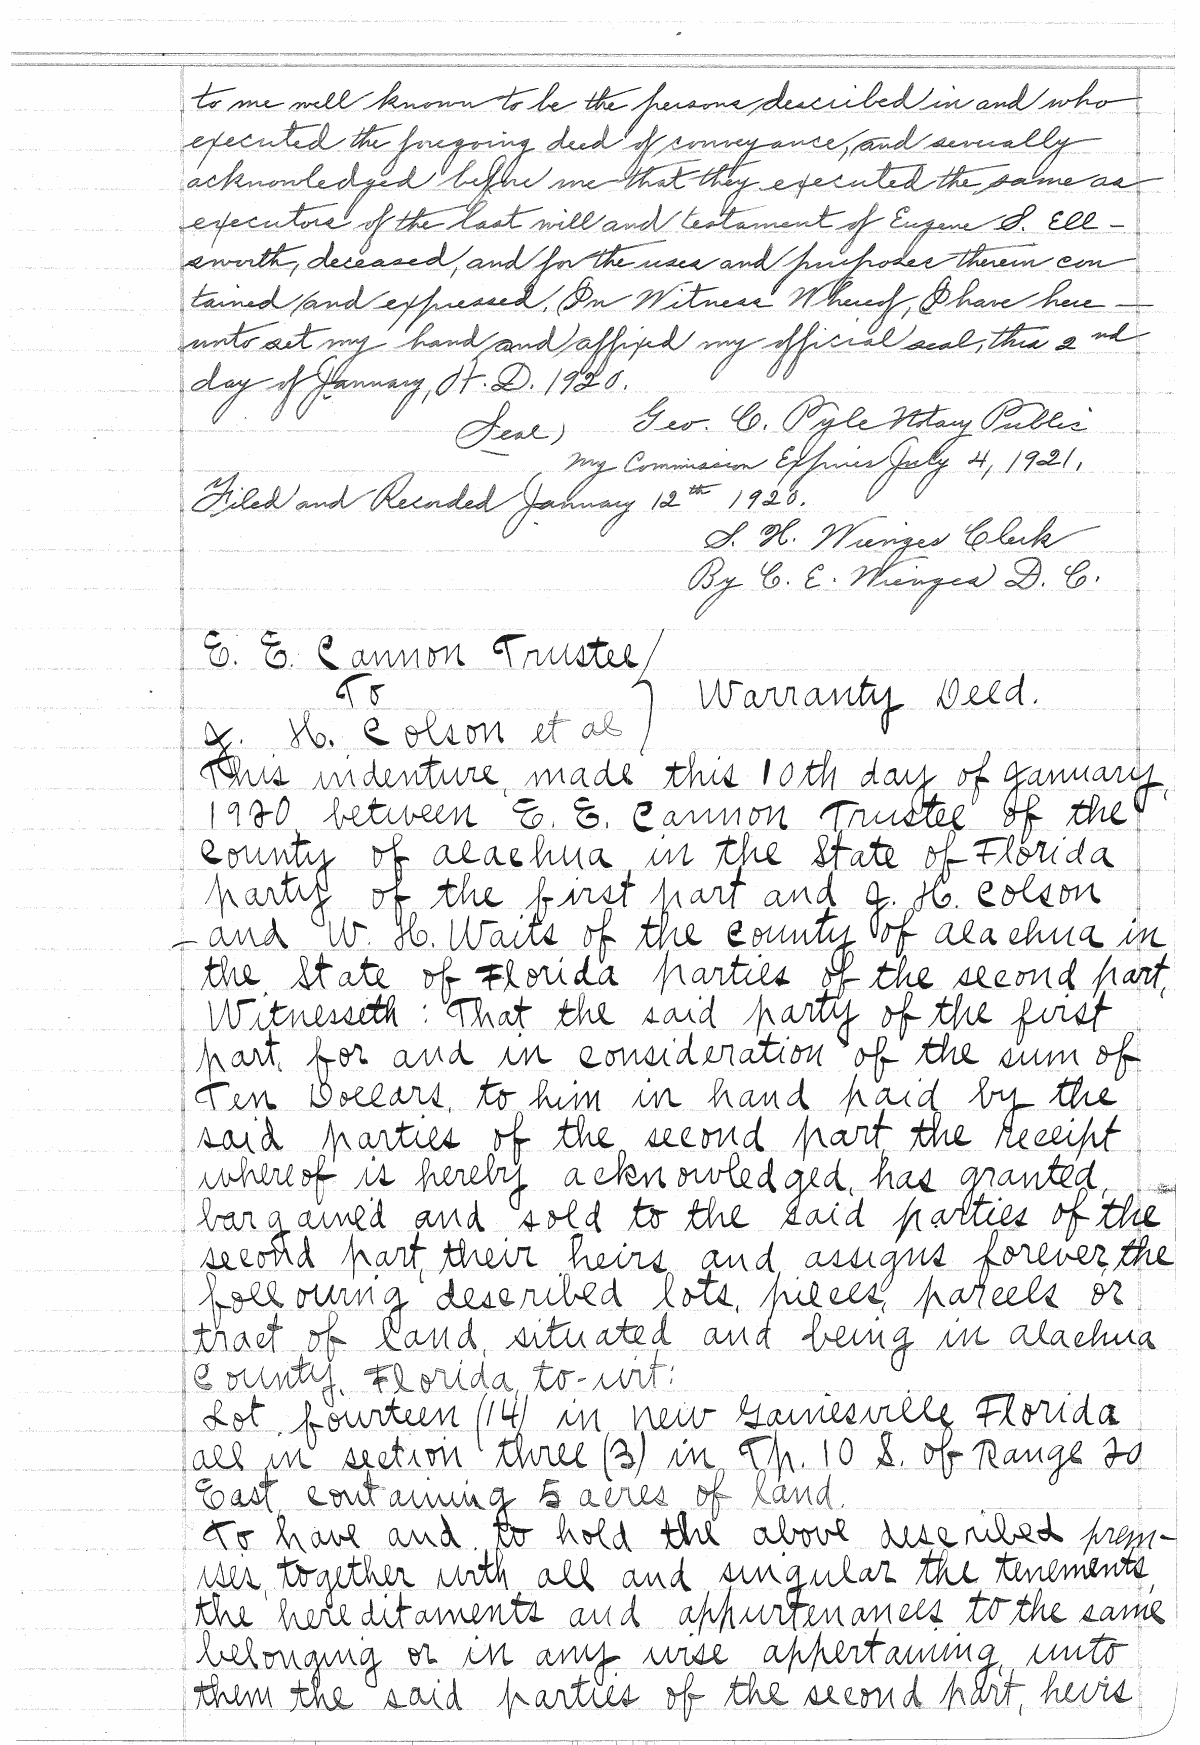 to me well known to be the persons described in and who
executed the foregoing deed of conveyance, and severally
acknowledged before me that they executed the same as
executors of the last will and testament of Eugene S. Ell-
sworth, deceased, and for the uses and purposes therein con
tained and expressed. In Witness Whereof, I have here-
unto set my hand and affixed my official seal, this 2nd
day of January, A. D. 1920.
Seal) Geo. C. Pyle Notary Public
My Commission Expires July 4, 1921.
Filed and Recorded January 12th 1920.
S. H. Wienges Clerk
By C. E. Wienges D. C.
E. E. Cannon Trustee
To Warranty Deed.
J. H. Colson et al
This indenture, made this 10th day of January,
1920, between E. E. Cannon Trustee of the
County of Alachua in the State of Florida
party of the first part and J. H. Colson
and W. H. Waits of the County of Alachua in
the State of Florida parties of the second part,
Witnesseth: That the said party of the first
part, for and in consideration of the sum of
Ten Dollars, to him in hand paid by the
said parties of the second part, the receipt
whereof is hereby acknowledged, has granted,
bargained and sold to the said parties of the
second part, their heirs and assigns forever, the
following described lots, pieces, parcels or
tract of land, situated and being in Alachua
County, Florida, to-wit:
Lot fourteen (14) in New Gainesville, Florida
all in section three (3) in Tp. 10 S. of Range 20
East, containing 5 acres of land.
To have and to hold the above described prem-
ises, together with all and singular the tenements,
the hereditaments and appurtenances to the same
belonging or in any wise appertaining, unto
them the said parties of the second part, heirs